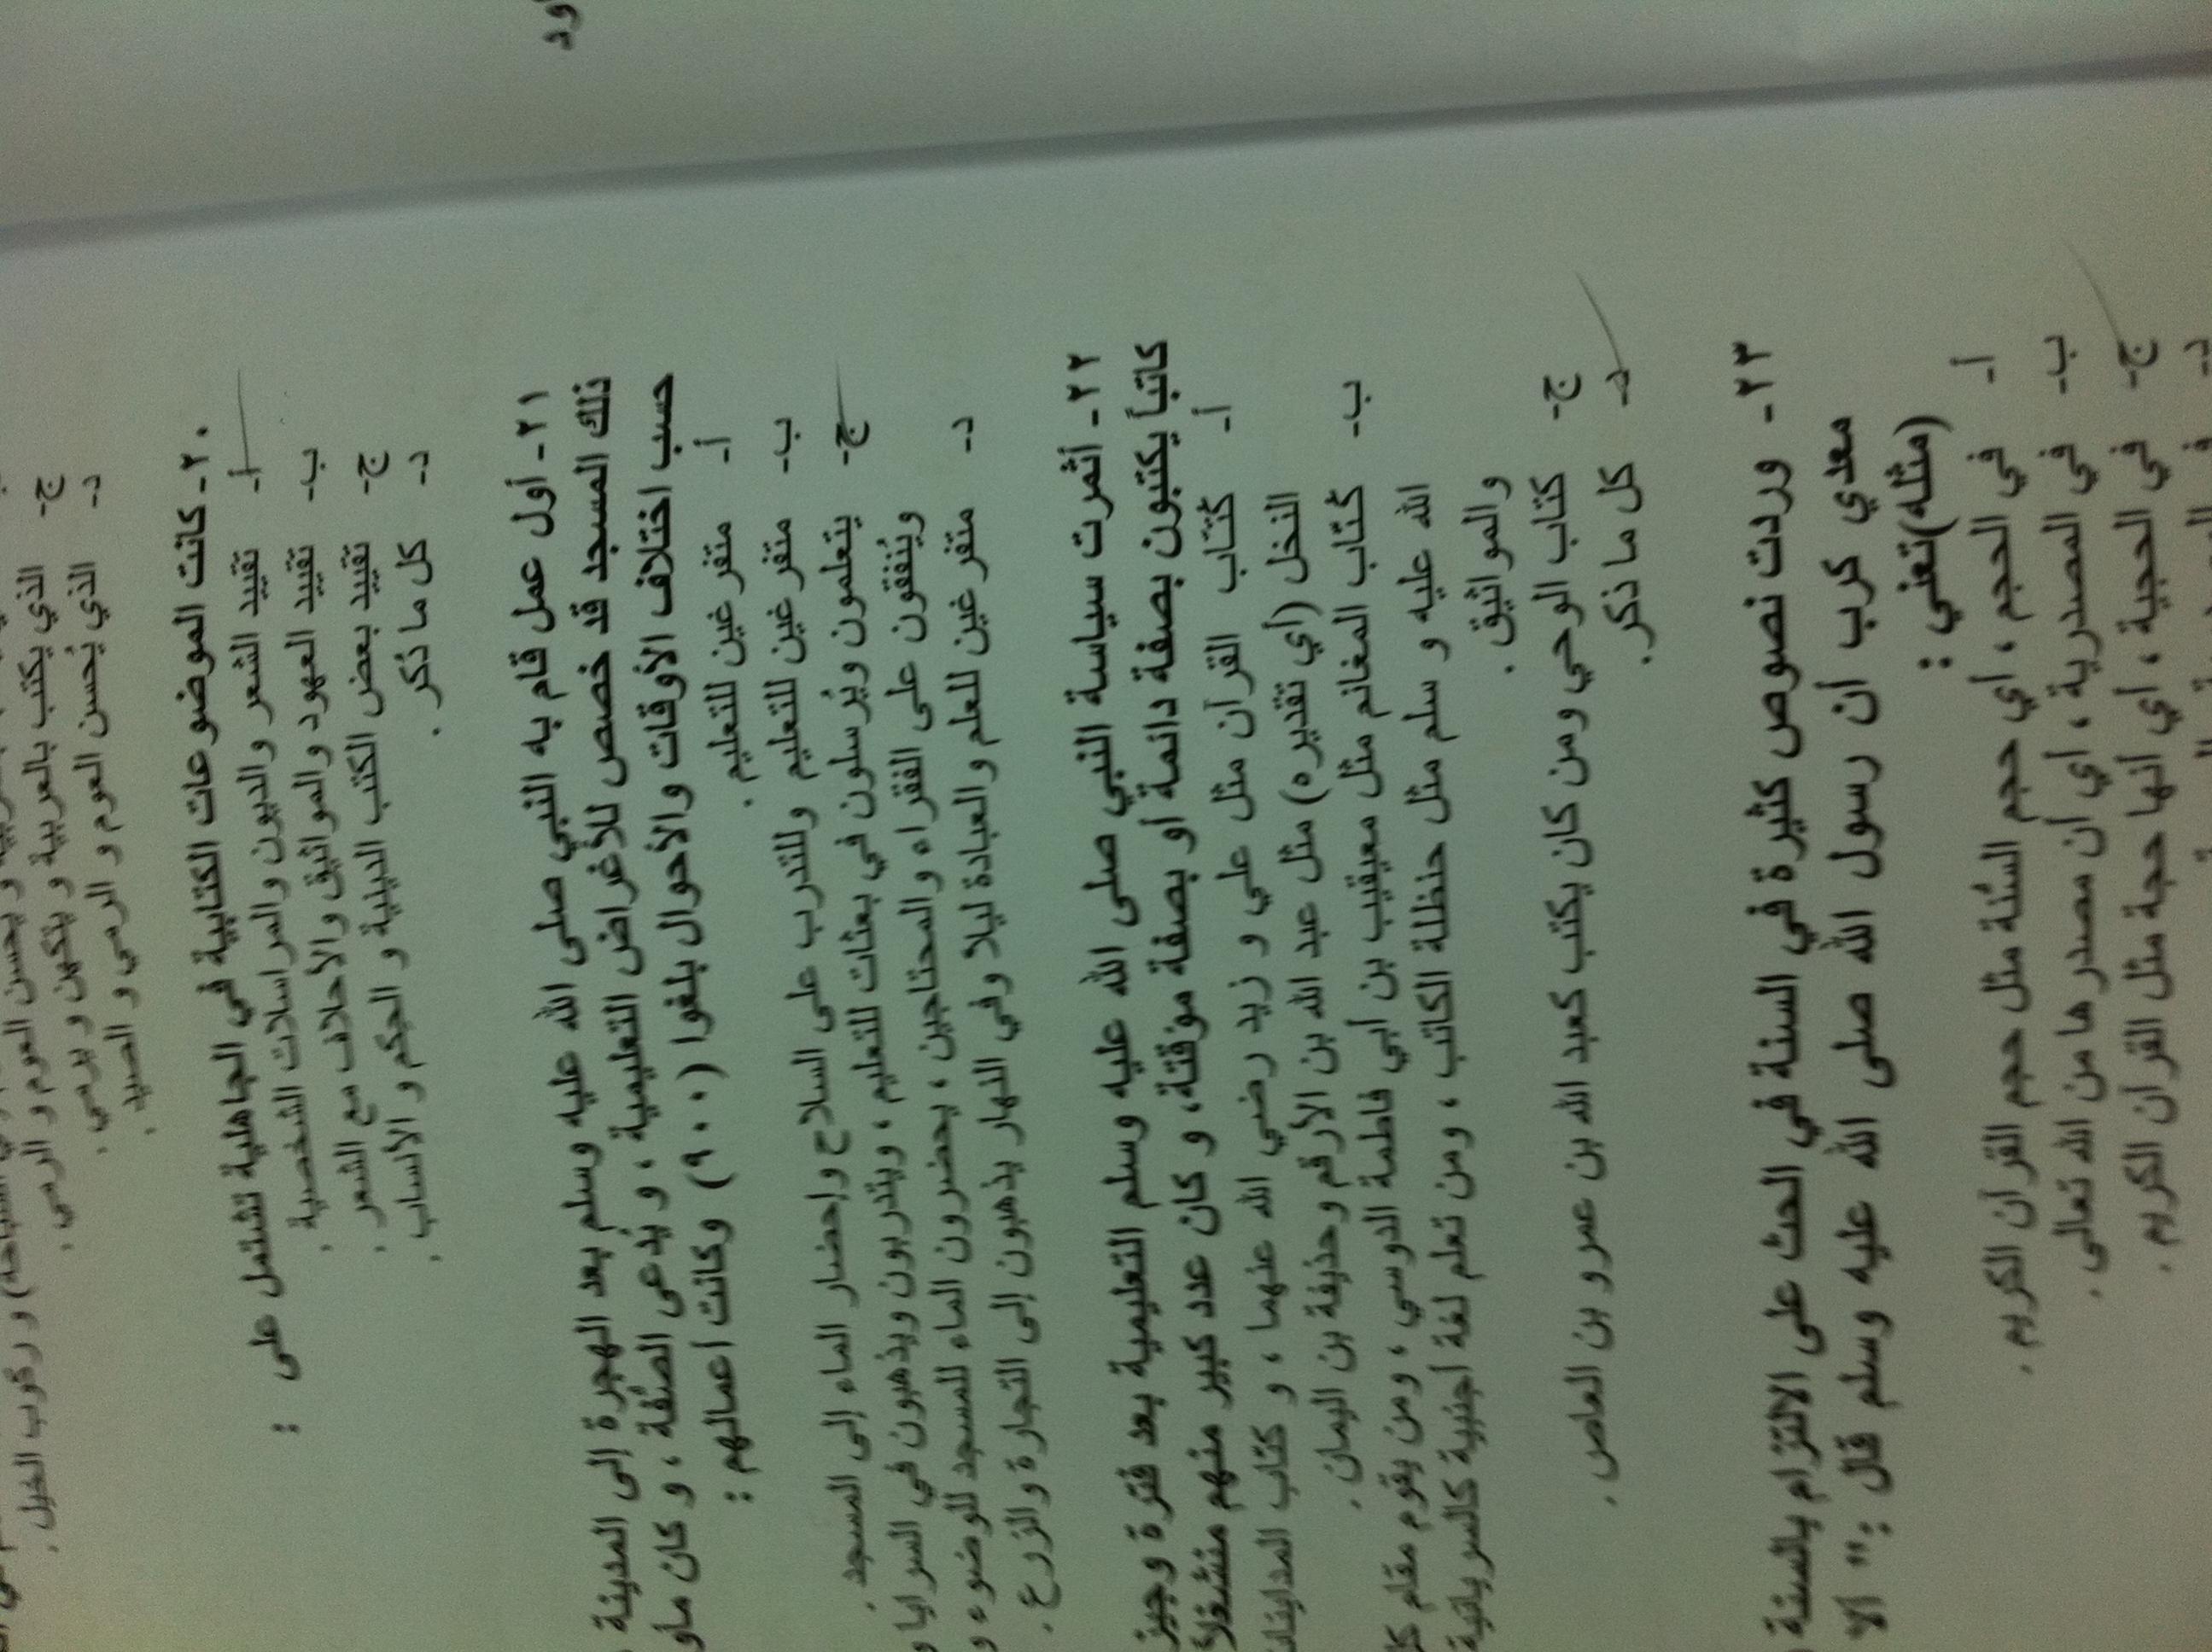 ود
ج- الذي يكتب بالعربية و يحسن العوم و الرمي و ركوب الخيل .
الذي يكتب بالعربية و يتكهن و يرمي .
د- الذي يُحسن العوم و الرمي و الصيد .
٢٠- كانت الموضوعات الكتابية في الجاهلية تشتمل على :
أ- تقييد الشعر والديون والمراسلات الشخصية .
ب- تقييد العهود والمواثيق والأحلاف مع الشعر .
ج- تقييد بعض الكتب الدينية و الحكم و الأنساب .
د- كل ما ذكر .
٢١- أول عمل قام به النبي صلى الله عليه وسلم بعد الهجرة إلى المدينة
ذلك المسجد قد خصص للأغراض التعليمية ، و يُدعى الصُفة ، و كان
حسب اختلاف الأوقات والأحوال بلغوا (٩٠٠) وكانت اعمالهم :
أ- متفرغين للتعليم .
ب- متفرغين للتعليم وللتدرب على السلاح وإحضار الماء إلى المسجد .
ج- يتعلمون ويُرسلون في بعثات للتعليم ، ويتدربون ويذهبون في السرايا
ويُنفقون على الفقراء والمحتاجين ، يحضرون الماء للمسجد للوضوء و
د- متفرغين للعلم والعبادة ليلا وفي النهار يذهبون إلى التجارة والزرع .
٢٢- أثمرت سياسة النبي صلى الله عليه وسلم التعليمية بعد فترة
كاتباً يكتبون بصفة دائمة أو بصفة مؤقتة، و كان عدد كبير منهم
أ- كُتّاب القرآن مثل علي و زيد رضي الله عنهما ، و كتاب
النخل (أي تقديره) مثل عبد الله بن الأرقم وحذيفة بن اليمان .
ب- كُتاب المغانم مثل معيقيب بن أبي فاطمة الدوسي ، ومن يقوم مقام
الله عليه و سلم مثل حنظلة الكاتب ، ومن تعلم لغة أجنبية كالسريانية
والمواثيق .
ج- كتاب الوحي ومن كان يكتب كعبد الله بن عمرو بن العاص .
د- كل ما ذكر .
٢٣- وردت نصوص كثيرة في السنة في الحث على الالتزام بالسنة
معدي كرب أن رسول الله صلى الله عليه وسلم قال :" ألا
(مثله)تعني :
أ- في الحجم ، أي حجم السُنة مثل حجم القرآن الكريم .
ب- في المصدرية ، أي أن مصدرها من الله تعالى .
ج- في الحجية ، أي أنها حجة مثل القرآن الكريم .
د-